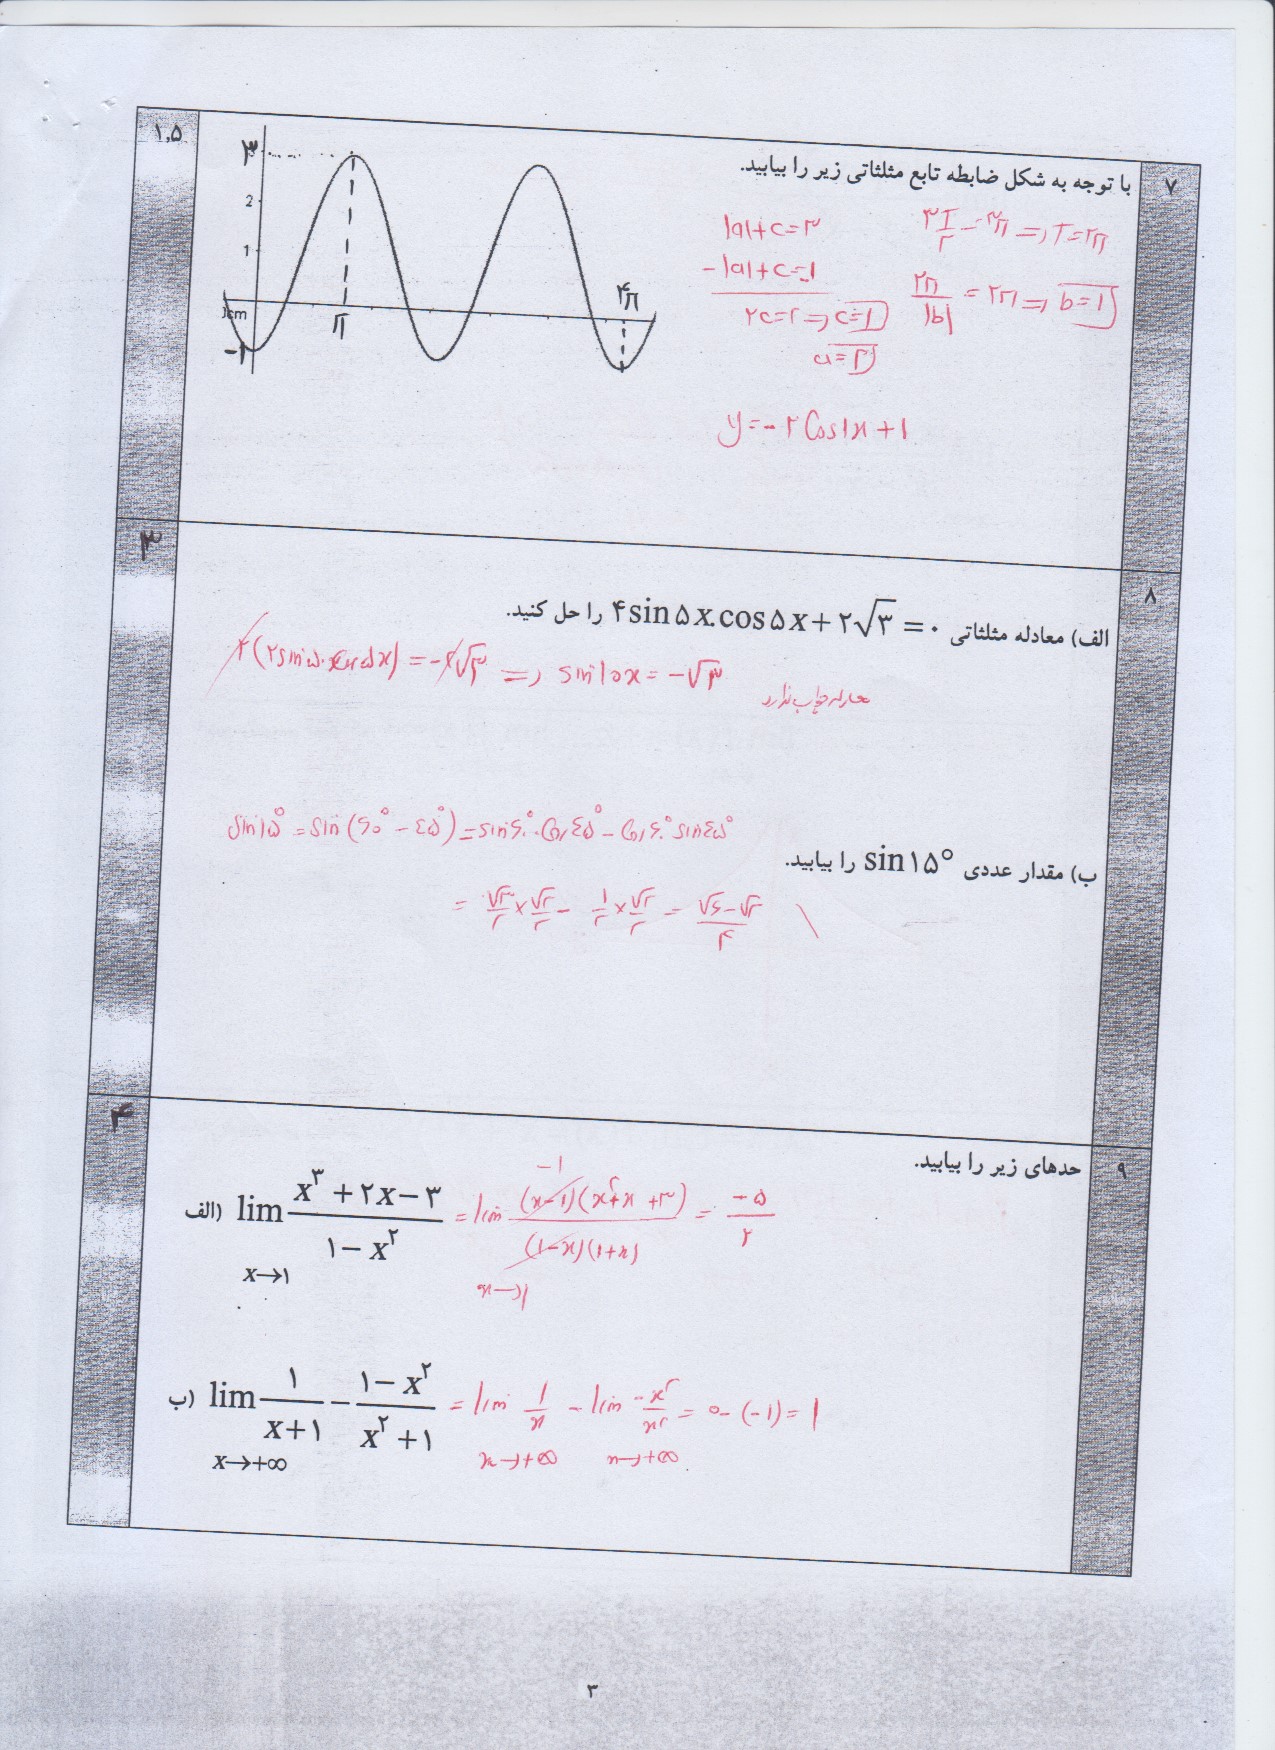 ۷
با توجه به شکل ضابطه تابع مثلثاتی زیر را بیابید.
۱,۵
۳
2
1
-۱
π
۴π
|a|+c=۳
-|a|+c=-۱
۲c=۲ ⇒ c=۱
a=۲
۳T/۲ = ۳π ⇒ T=۲π
۲π/|b| = ۲π ⇒ b=۱
y=-۲ Cos ۱x + ۱
۸
۳
الف) معادله مثلثاتی ۴sin۵x.cos۵x+۲√۳ =۰ را حل کنید.
۲(۲sin۵x.cos۵x) = -۲√۳ ⇒ sin۱۰x = -√۳
معادله جواب ندارد
sin۱۵° = sin(۶۰° - ۴۵°) = sin۶۰°.Cos۴۵° - Cos۶۰° sin۴۵°
ب) مقدار عددی sin۱۵° را بیابید.
= √۳/۲ × √۲/۲ - ۱/۲ × √۲/۲ = (√۶-√۲)/۴
۹
۴
حدهای زیر را بیابید.
الف) lim x→۱ (x³+۲x-۳)/(۱-x²) = lim x→۱ (x-۱)(x²+x+۳)/(۱-x)(۱+x) = -۵/۲
-۱
ب) lim x→+∞ ۱/(x+۱) - (۱-x²)/(x²+۱) = lim x→+∞ ۱/x - lim x→+∞ -x²/x² = ۰-(-۱) = ۱
۳